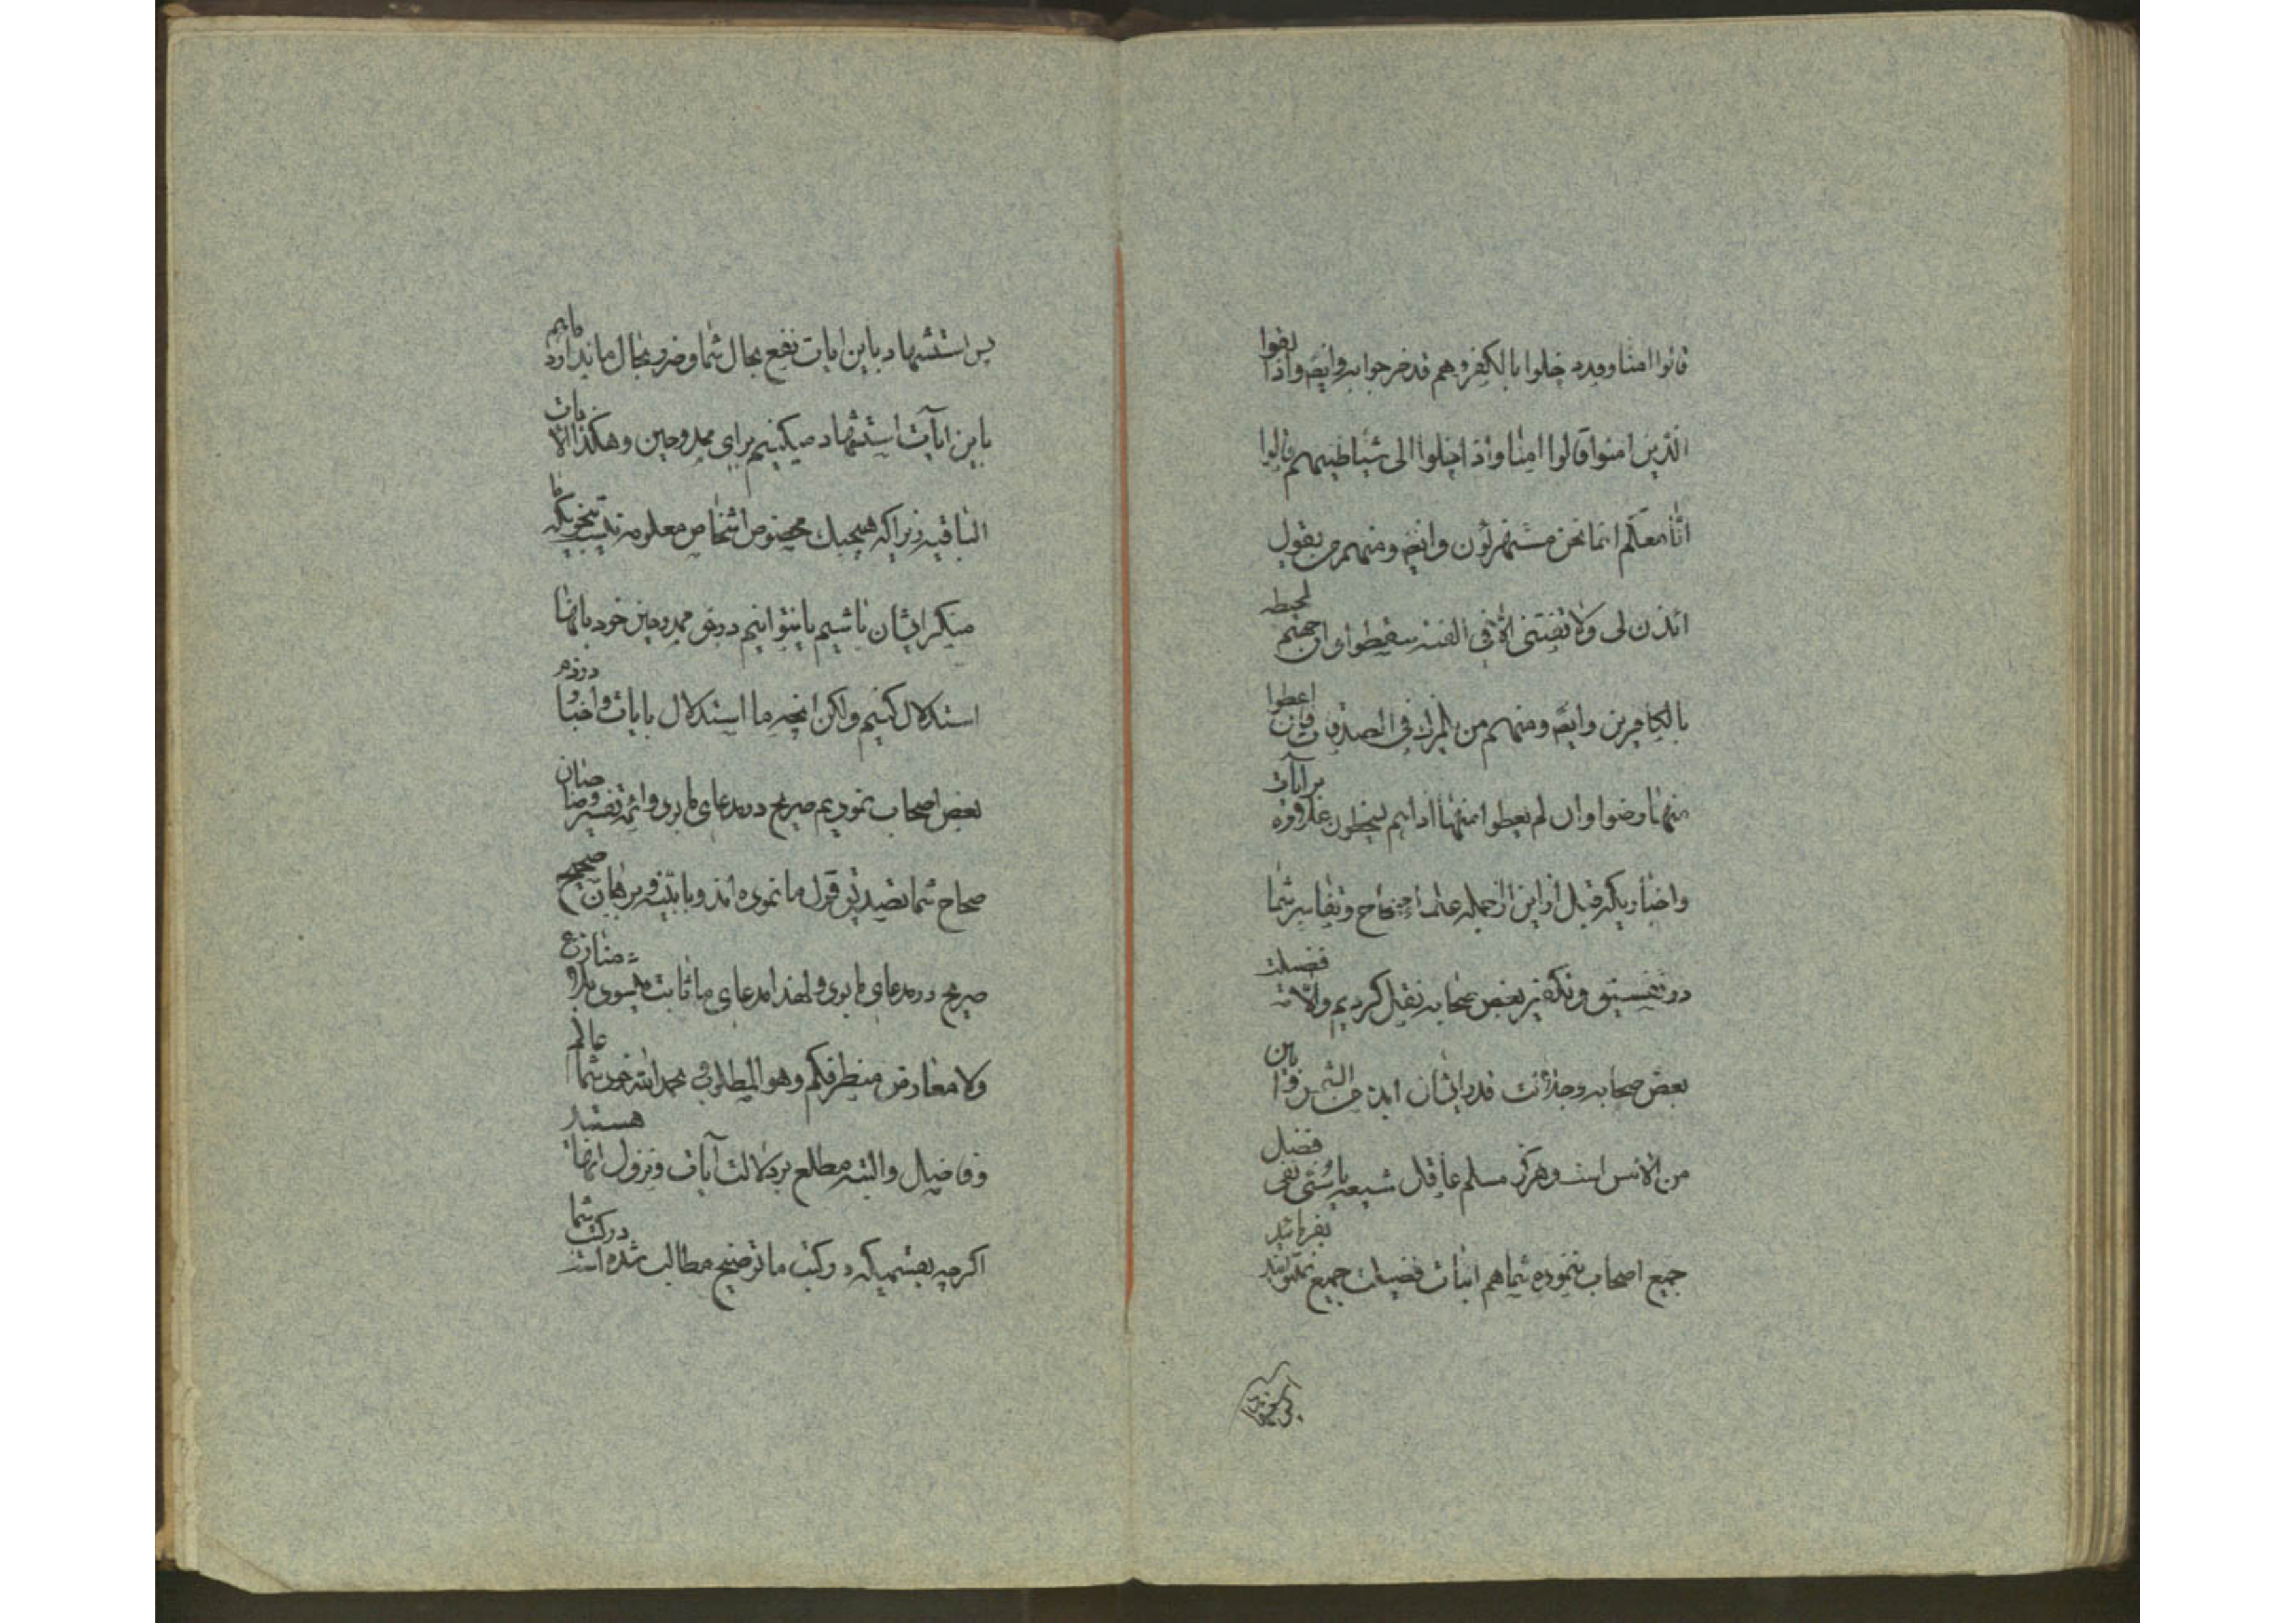 قالوا امنا وقد دخلوا بالكفر وهم قد خرجوا به وایضا واذا لقوا
الذین امنوا قالوا امنا واذا خلوا الی شیاطینهم قالوا
انا معکم انما نحن مستهزئون وایضا ومنهم من یقول
ائذن لی ولا تفتنی الا فی الفتنه سقطوا وان جهنم لمحیطه
بالکافرین وایضا ومنهم من یلمزک فی الصدقات فان اعطوا
منها رضوا وان لم یعطوا منها اذا هم یسخطون علاوه بر ایات
واخباریکه قبل از این از جمله علماء صحاح وتفاسیر شما
در تفسیق وتکفیر بعض صحابه نقل کردیم والا فضیلت
بعض صحابه وجلالت قدر ایشان ابین من الشمس و این
من الامس است وهرکز مسلم عاقل شیعه یا سنی نفی فضل
جمیع اصحاب ننموده شما هم اثبات فضیلت جمیع نمیتوانید بفرمائید
پس استشهاد باین ایات نفع بحال شما وضرر بحال ما ندارد ما هم
باین ایات استشهاد میکنیم برای ممدوحین وهکذا الایات
الباقیه زیرا که هیچیک مخصوص اشخاص معلومه نیست بنحویکه ما
منکر ایشان باشیم یا نتوانیم در حق ممدوحین خود بانها
استدلال کنیم ولکن انچه ما استدلال بایات واخبار در ذم
بعض اصحاب نمودیم صریح در مدعای ما بود وائمه تفسیر وصاحبان
صحاح شما تصدیق قول ما نموده اند وبا بینه وبرهان صحیح
صریح در مدعای ما بود ولهذا مدعای ما ثابت میشود بلا منازع
ولا معارض من طرفکم وهو المطلوب بحمد الله خود شما عالم
وفاضل والبته مطلع بر دلالت آیات ونزول انها هستید
اکرچه بقسمیکه در کتب ما توضیح مطالب شده است در کتب شما